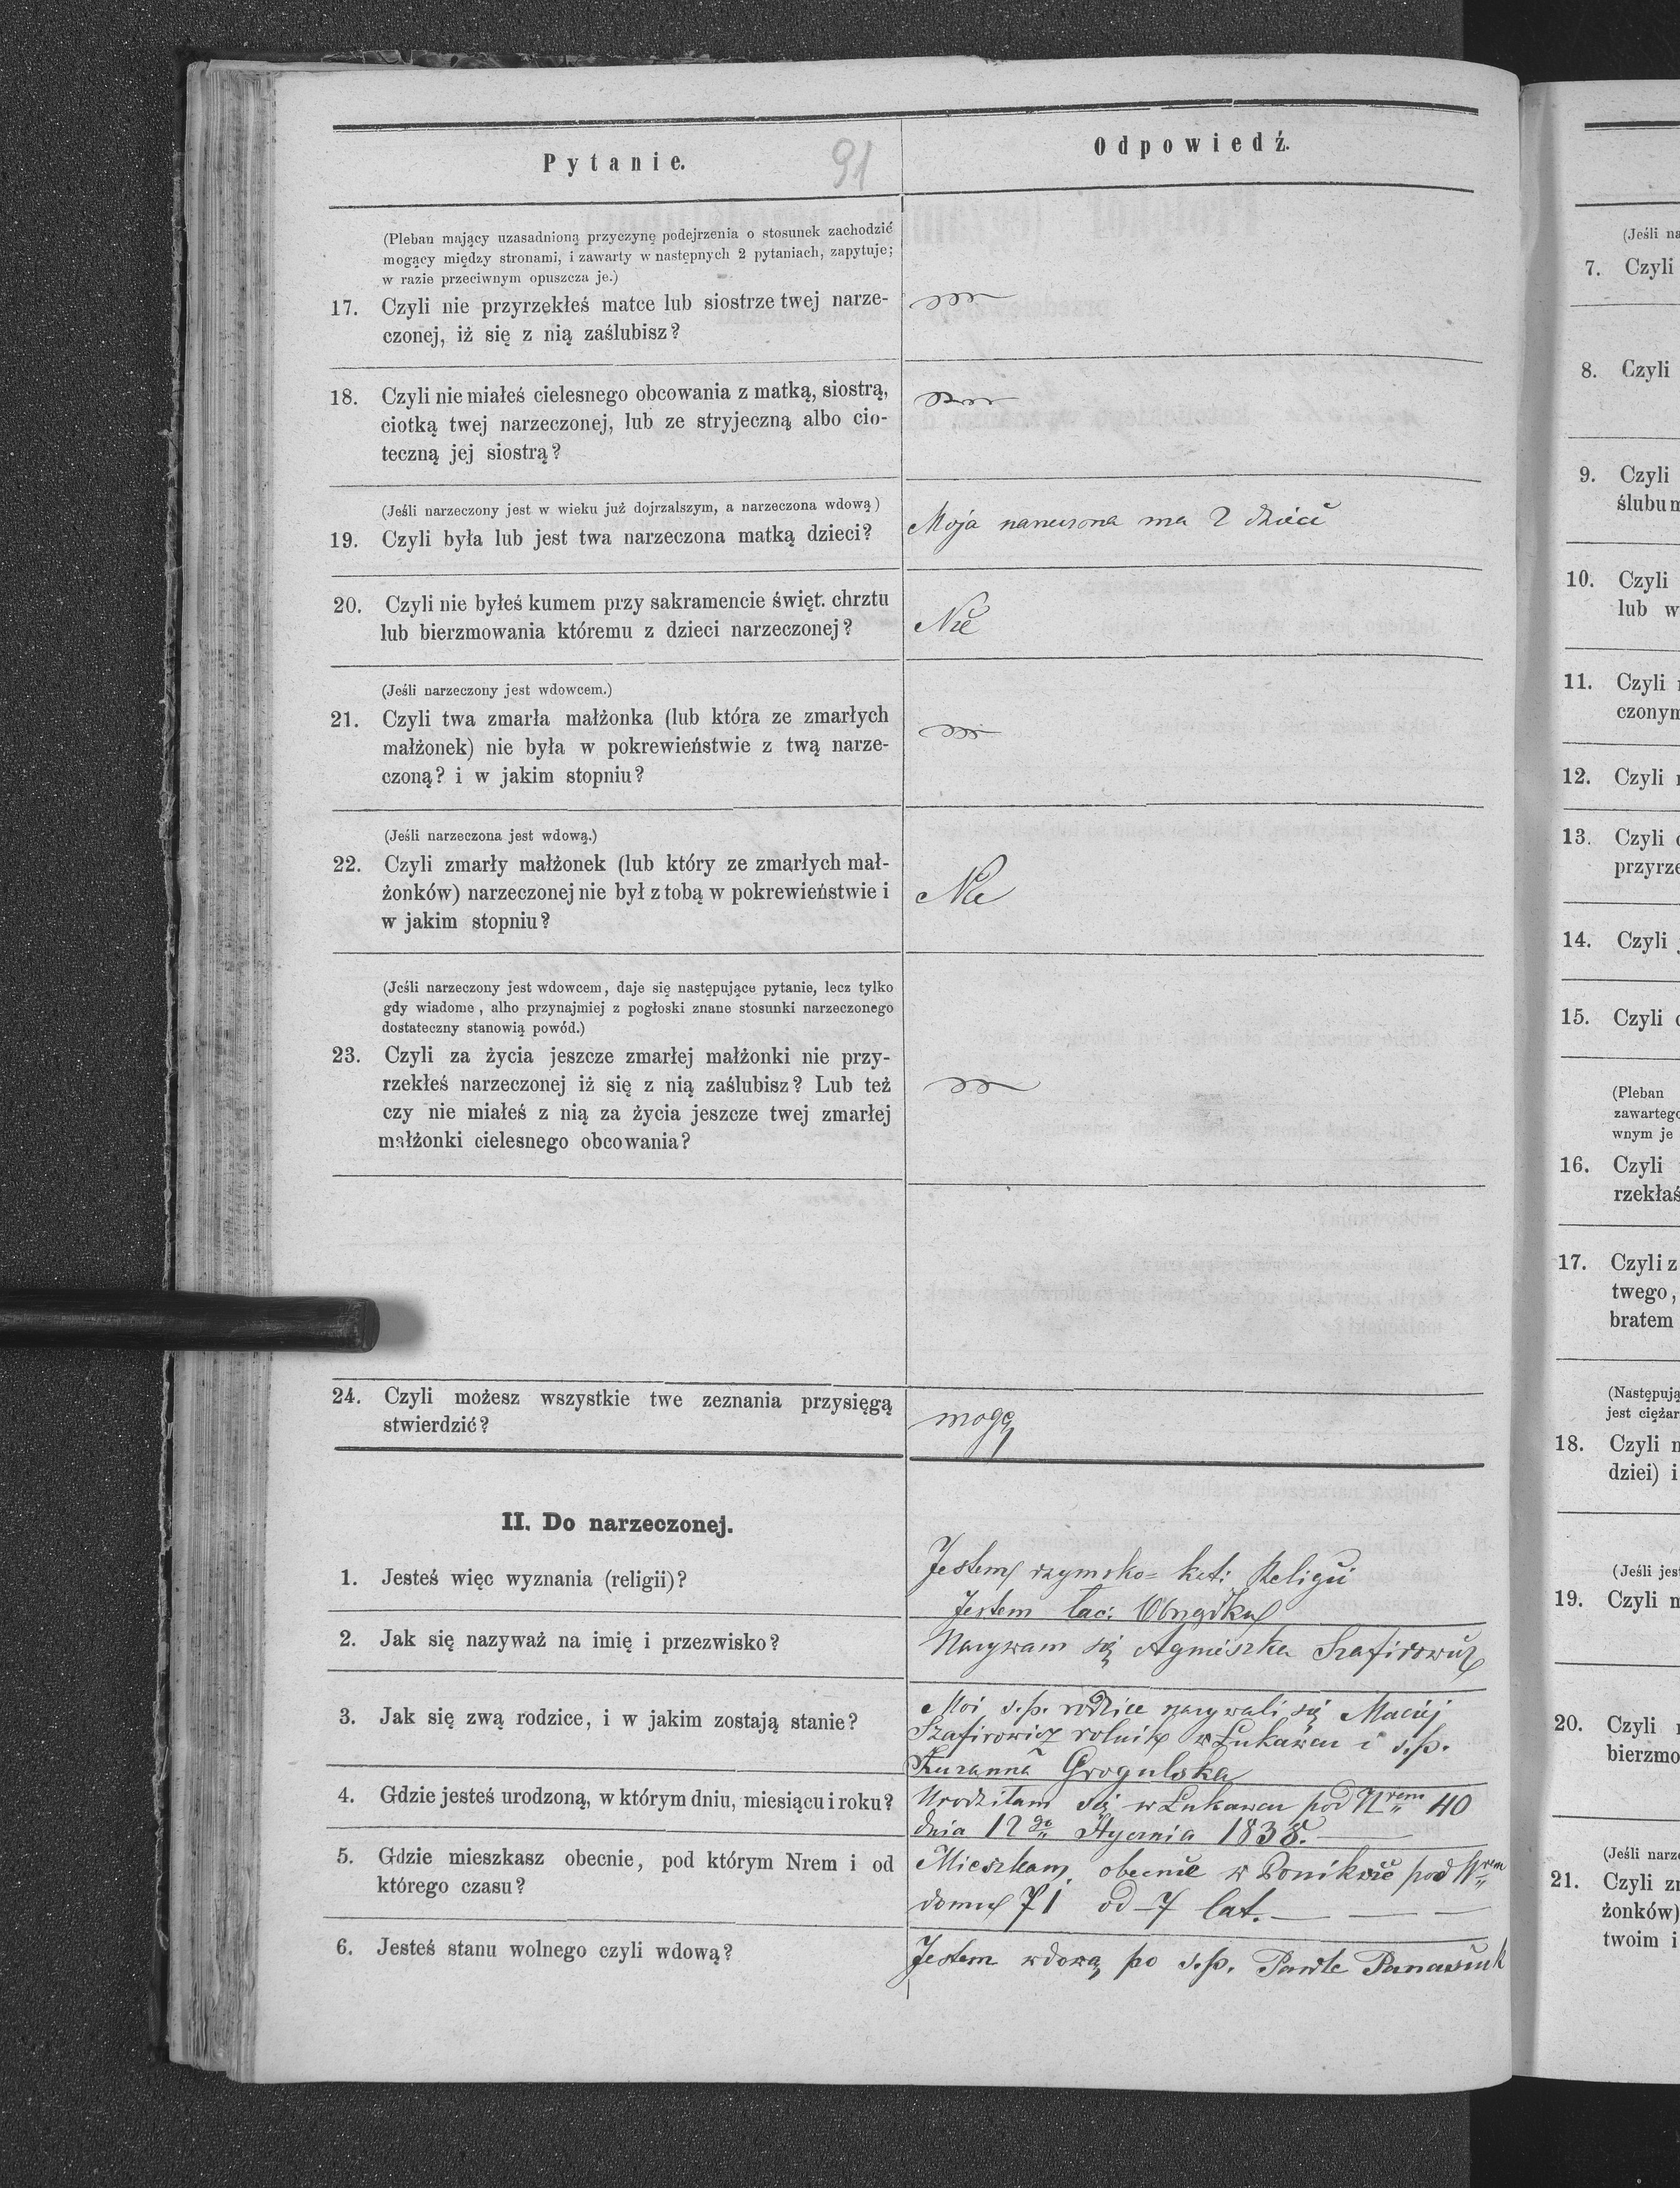 Pytanie.
91
Odpowiedź.
(Pleban mający uzasadnioną przyczynę podejrzenia o stosunek zachodzić
mogący między stronami, i zawarty w następnych 2 pytaniach, zapytuje;
w razie przeciwnym opuszcza je.)
17. Czyli nie przyrzekłeś matce lub siostrze twej narze-
czonej, iż się z nią zaślubisz?
18. Czyli nie miałeś cielesnego obcowania z matką, siostrą,
ciotką twej narzeczonej, lub ze stryjeczną albo cio-
teczną jej siostrą?
(Jeśli narzeczony jest w wieku już dojrzalszym, a narzeczona wdową)
19. Czyli była lub jest twa narzeczona matką dzieci?
Moja narzeczona ma 2 dzieci
20. Czyli nie byłeś kumem przy sakramencie święt. chrztu
lub bierzmowania któremu z dzieci narzeczonej?
Nie
(Jeśli narzeczony jest wdowcem.)
21. Czyli twa zmarła małżonka (lub która ze zmarłych
małżonek) nie była w pokrewieństwie z twą narze-
czoną? i w jakim stopniu?
(Jeśli narzeczona jest wdową.)
22. Czyli zmarły małżonek (lub który ze zmarłych mał-
żonków) narzeczonej nie był z tobą w pokrewieństwie i
w jakim stopniu?
Nie
(Jeśli narzeczony jest wdowcem, daje się następujące pytanie, lecz tylko
gdy wiadome, alho przynajmiej z pogłoski znane stosunki narzeczonego
dostateczny stanowią powód.)
23. Czyli za życia jeszcze zmarłej małżonki nie przy-
rzekłeś narzeczonej iż się z nią zaślubisz? Lub też
czy nie miałeś z nią za życia jeszcze twej zmarłej
małżonki cielesnego obcowania?
24. Czyli możesz wszystkie twe zeznania przysięgą
stwierdzić?
mogę
II. Do narzeczonej.
1. Jesteś więc wyznania (religii)?
Jestem rzymsko= kat: Religii
Jestem łac: Obrządku
2. Jak się nazyważ na imię i przezwisko?
Nazywam się Agnieszka Szafirowicz
3. Jak się zwą rodzice, i w jakim zostają stanie?
Moi s.p. rodzice nazywali się Maciej
Szafirowicz rolnik w Łukawcu i s.p.
Zuzanna Grogulska
4. Gdzie jesteś urodzoną, w którym dniu, miesiącu i roku?
Urodziłam się w Łukawcu pod Nrem 40
dnia 12go Stycznia 1838.
5. Gdzie mieszkasz obecnie, pod którym Nrem i od
którego czasu?
Mieszkam obecnie w Ponikwie pod Nrem
domu 71 od 7 lat.
6. Jesteś stanu wolnego czyli wdową?
Jestem wdową po s.p. Pawle Panasiuk
(Jeśli na
7. Czyli
8. Czyli
9. Czyli
ślubu
10. Czyli
lub w
11. Czyli
czonym
12. Czyli
13. Czyli
przyrze
14. Czyli
15. Czyli
(Pleban
zawartego
wnym je
16. Czyli
rzekłaś
17. Czyli z
twego,
bratem
(Następują
jest ciężar
18. Czyli
dziei) i
(Jeśli jes
19. Czyli
20. Czyli
bierzmo
(Jeśli narze
21. Czyli
żonków)
twoim i